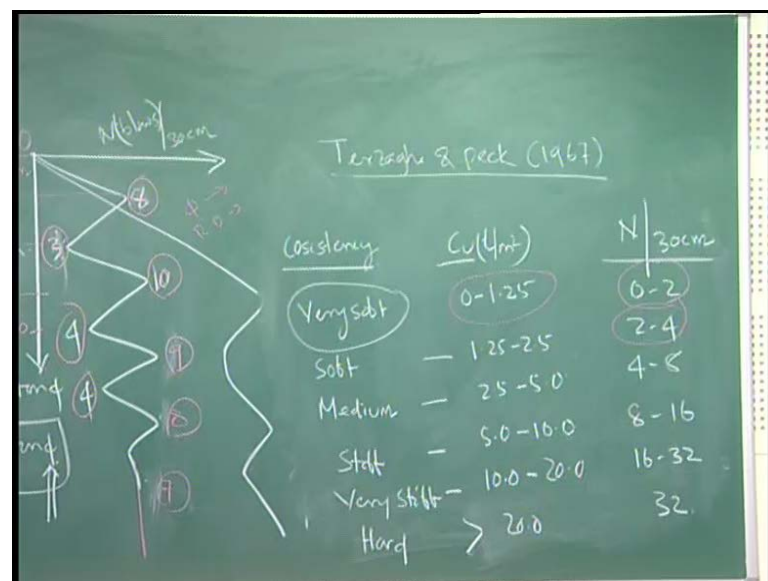 N(blows)/30cm
Terzaghi & peck (1967)
8
3
10
4
9
4
10
7
Cosistency Cu(t/m²) N/30cm
Very soft 0-1.25 0-2
Soft - 1.25-2.5 2-4
Medium - 2.5-5.0 4-8
Stiff - 5.0-10.0 8-16
Very stiff - 10.0-20.0 16-32
Hard > 20.0 32